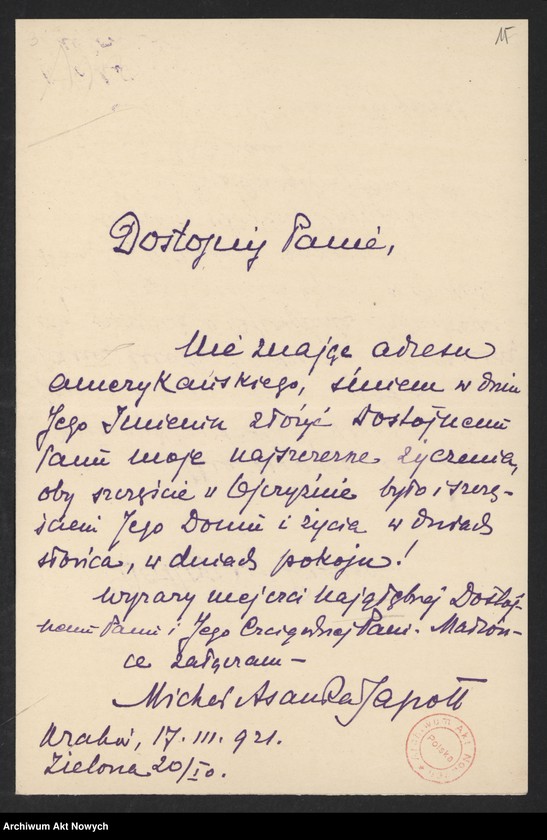 15
Dostojny Panie,
Nie znając adresu
amerykańskiego, śmiem w dniu
Jego Imienin złożyć Dostojnemu
Panu moje najszczersze życzenia,
oby szczęście w Ojczyźnie było i szczę-
ściem Jego Domu i życia w dniach
słońca, w dniach pokoju!
Wyrazy mej czci najgłębszej Dostoj-
nemu Panu i Jego Czcigodnej Pani-Małżon-
ce załączam –
Michał Asanka Japołł
Kraków, 17. III. 921.
Zielona 20/I p.
Archiwum Akt Nowych
Polska
Archiwum Akt Nowych